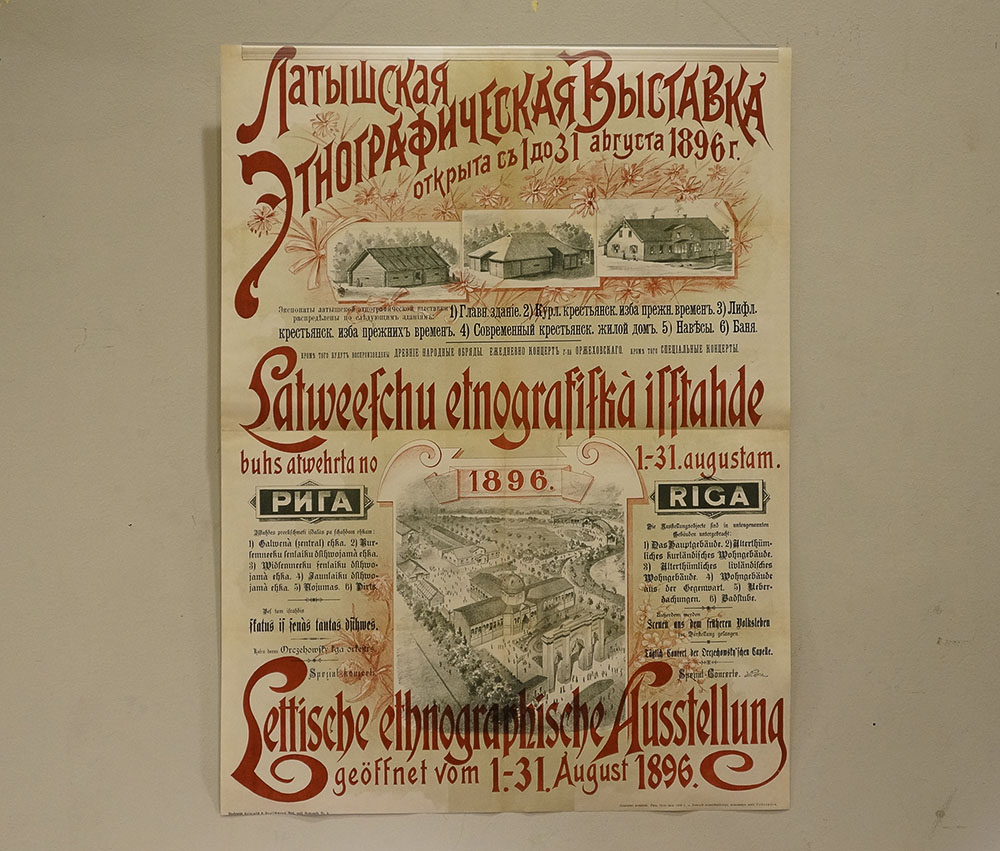 Латышская
Этнографическая Выставка
открыта съ 1 до 31 августа 1896 г.
Экспонаты латышской этнографической выставки
распредѣлены по слѣдующимъ зданіямъ: 1) Главн. зданіе. 2) Курл. крестьянск. изба прежн. временъ. 3) Лифл.
крестьянск. изба прежнихъ временъ. 4) Современный крестьянск. жилой домъ. 5) Навѣсы. 6) Баня.
кромѣ того будутъ воспроизведены древніе народные обряды. ежедневно концертъ г-на Оржеховскаго. кромѣ того спеціальные концерты.
Latweeſchu etnografiſkà iſſtahde
buhs atwehrta no
1.-31. augustam.
1896.
РИГА
1) Galwenà (zentral) ehka. 2) Kur-
ſemneeku ſenlaiku dſihwojamà ehka.
3) Widſemneeku ſenlaiku dſihwo-
jamà ehka. 4) Jaunlaiku dſihwo-
jamà ehka. 5) Nojumas. 6) Pirts.
Beſ tam iſrahdis
ſkatus iſ ſenàs tautas dſihwes.
Orezehowsky
RIGA
Die Ausstellungsobjecte sind in untengenannten
Gebäuden untergebracht:
1) Das Hauptgebäude. 2) Alterthüm-
liches kurländisches Wohngebäude.
3) Alterthümliches livländisches
Wohngebäude. 4) Wohngebäude
aus der Gegenwart. 5) Ueber-
dachungen. 6) Badstube.
Ausserdem werden
Scenen aus dem früheren Volksleben
zur Darstellung gelangen.
Täglich Concert der Orezehowsky'schen Capelle.
Spezial-Concerte.
Lettische ethnographische Ausstellung
geöffnet vom 1.-31. August 1896.